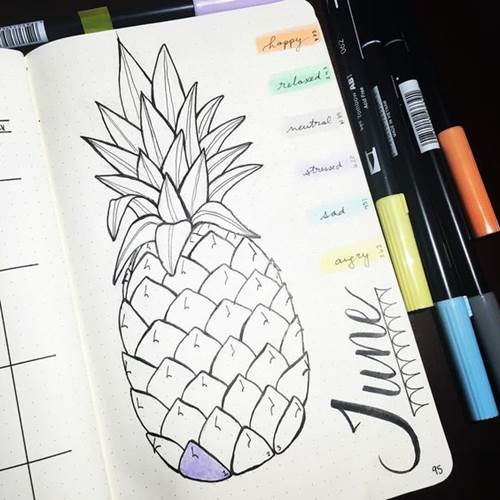 happy
relaxed
neutral
stressed
sad
angry
June
95